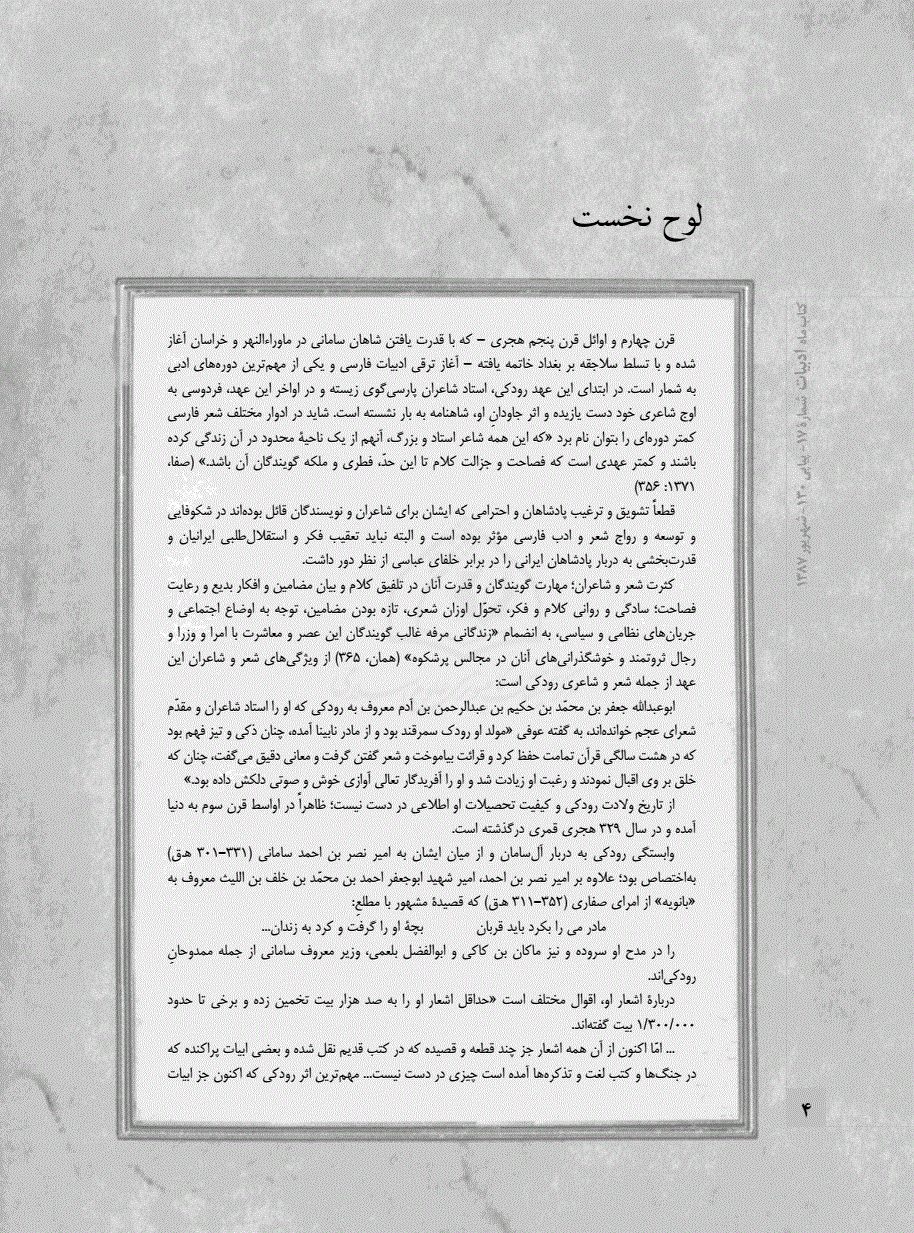 لوح نخست
قرن چهارم و اوائل قرن پنجم هجری – که با قدرت یافتن شاهان سامانی در ماوراءالنهر و خراسان آغاز
شده و با تسلط سلاجقه بر بغداد خاتمه یافته – آغاز ترقی ادبیات فارسی و یکی از مهم‌ترین دوره‌های ادبی
به شمار است. در ابتدای این عهد رودکی، استاد شاعران پارسی‌گوی زیسته و در اواخر این عهد، فردوسی به
اوج شاعری خود دست یازیده و اثر جاودانِ او، شاهنامه به بار نشسته است. شاید در ادوار مختلف شعر فارسی
کمتر دوره‌ای را بتوان نام برد «که این همه شاعر استاد و بزرگ، آنهم از یک ناحیهٔ محدود در آن زندگی کرده
باشند و کمتر عهدی است که فصاحت و جزالت کلام تا این حدّ، فطری و ملکه گویندگان آن باشد.» (صفا،
۱۳۷۱: ۳۵۶)
قطعاً تشویق و ترغیب پادشاهان و احترامی که ایشان برای شاعران و نویسندگان قائل بوده‌اند در شکوفایی
و توسعه و رواج شعر و ادب فارسی مؤثر بوده است و البته نباید تعقیب فکر و استقلال‌طلبی ایرانیان و
قدرت‌بخشی به دربار پادشاهان ایرانی را در برابر خلفای عباسی از نظر دور داشت.
کثرت شعر و شاعران؛ مهارت گویندگان و قدرت آنان در تلفیق کلام و بیان مضامین و افکار بدیع و رعایت
فصاحت؛ سادگی و روانی کلام و فکر، تحوّل اوزان شعری، تازه بودن مضامین، توجه به اوضاع اجتماعی و
جریان‌های نظامی و سیاسی، به انضمام «زندگانی مرفه غالب گویندگان این عصر و معاشرت با امرا و وزرا و
رجال ثروتمند و خوشگذرانی‌های آنان در مجالس پرشکوه» (همان، ۳۶۵) از ویژگی‌های شعر و شاعران این
عهد از جمله شعر و شاعری رودکی است:
ابوعبدالله جعفر بن محمّد بن حکیم بن عبدالرحمن بن آدم معروف به رودکی که او را استاد شاعران و مقدّم
شعرای عجم خوانده‌اند، به گفته عوفی «مولد او رودک سمرقند بود و از مادر نابینا آمده، چنان ذکی و تیز فهم بود
که در هشت سالگی قرآن تمامت حفظ کرد و قرائت بیاموخت و شعر گفتن گرفت و معانی دقیق می‌گفت، چنان که
خلق بر وی اقبال نمودند و رغبت او زیادت شد و او را آفریدگار تعالی آوازی خوش و صوتی دلکش داده بود.»
از تاریخ ولادت رودکی و کیفیت تحصیلات او اطلاعی در دست نیست؛ ظاهراً در اواسط قرن سوم به دنیا
آمده و در سال ۳۲۹ هجری قمری درگذشته است.
وابستگی رودکی به دربار آل‌سامان و از میان ایشان به امیر نصر بن احمد سامانی (۳۳۱–۳۰۱ ه‍.ق)
به‌اختصاص بود؛ علاوه بر امیر نصر بن احمد، امیر شهید ابوجعفر احمد بن محمّد بن خلف بن اللیث معروف به
«بانویه» از امرای صفاری (۳۵۲–۳۱۱ ه‍.ق) که قصیدهٔ مشهور با مطلعِ:
مادر می را بکرد باید قربان بچهٔ او را گرفت و کرد به زندان...
را در مدح او سروده و نیز ماکان بن کاکی و ابوالفضل بلعمی، وزیر معروف سامانی از جمله ممدوحانِ
رودکی‌اند.
دربارهٔ اشعار او، اقوال مختلف است «حداقل اشعار او را به صد هزار بیت تخمین زده و برخی تا حدود
۱/۳۰۰/۰۰۰ بیت گفته‌اند.
... امّا اکنون از آن همه اشعار جز چند قطعه و قصیده که در کتب قدیم نقل شده و بعضی ابیات پراکنده که
در جنگ‌ها و کتب لغت و تذکره‌ها آمده است چیزی در دست نیست... مهم‌ترین اثر رودکی که اکنون جز ابیات
کتاب ماه ادبیات شمارهٔ ۱۷- پیاپی ۱۳۰- شهریور ۱۳۸۷
۴